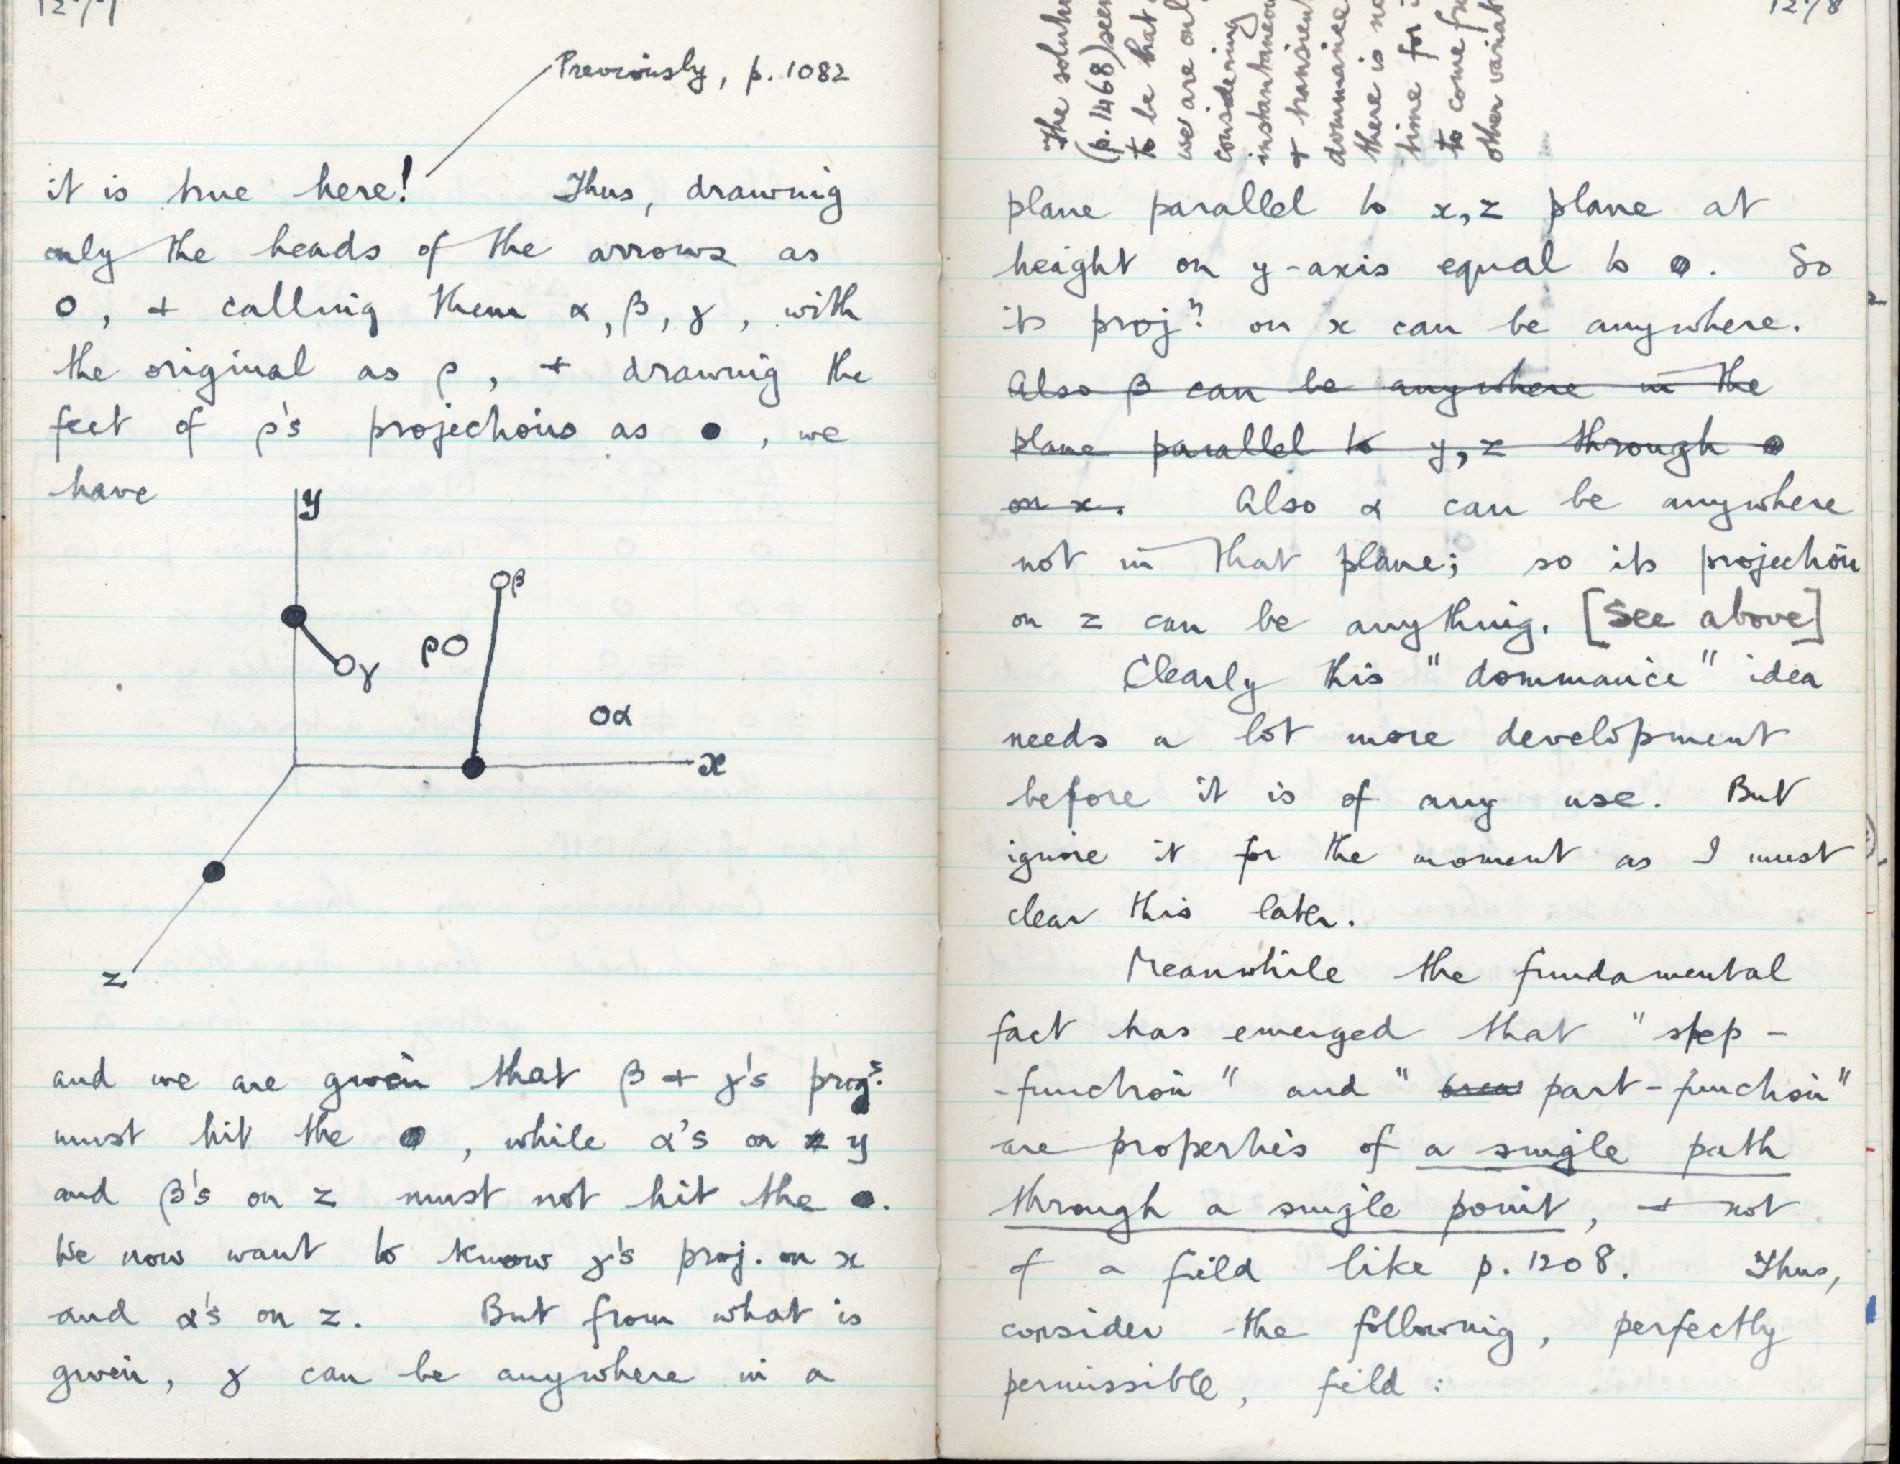 Previously, p. 1082
it is true here! Thus, drawing
only the heads of the arrows as
o, + calling them α, β, γ, with
the original as ρ, + drawing the
feet of ρ's projections as ●, we
have
y
β
ρ
γ
α
x
z
and we are given that β + γ's projⁿˢ.
must hit the ●, while α's on y
and β's on z must not hit the ●.
We now want to know γ's proj. on x
and α's on z. But from what is
given, γ can be anywhere in a
The
(p. 1468) seem
to be that
we are only
considering
instantaneous
+ transient
dominance
there is no
time for
to come
other
plane parallel to x, z plane at
height on y-axis equal to ●. So
its projⁿ on x can be anywhere.
Also β can be anywhere in the
plane parallel to y, z through ●
on x. Also α can be anywhere
not in that plane; so its projection
on z can be anything. [See above]
Clearly this "dominance" idea
needs a lot more development
before it is of any use. But
ignore it for the moment as I must
clear this later.
Meanwhile the fundamental
fact has emerged that "step-
-function" and "part-function"
are properties of a single path
through a single point, + not
of a field like p. 1208. Thus,
consider the following, perfectly
permissible, field: